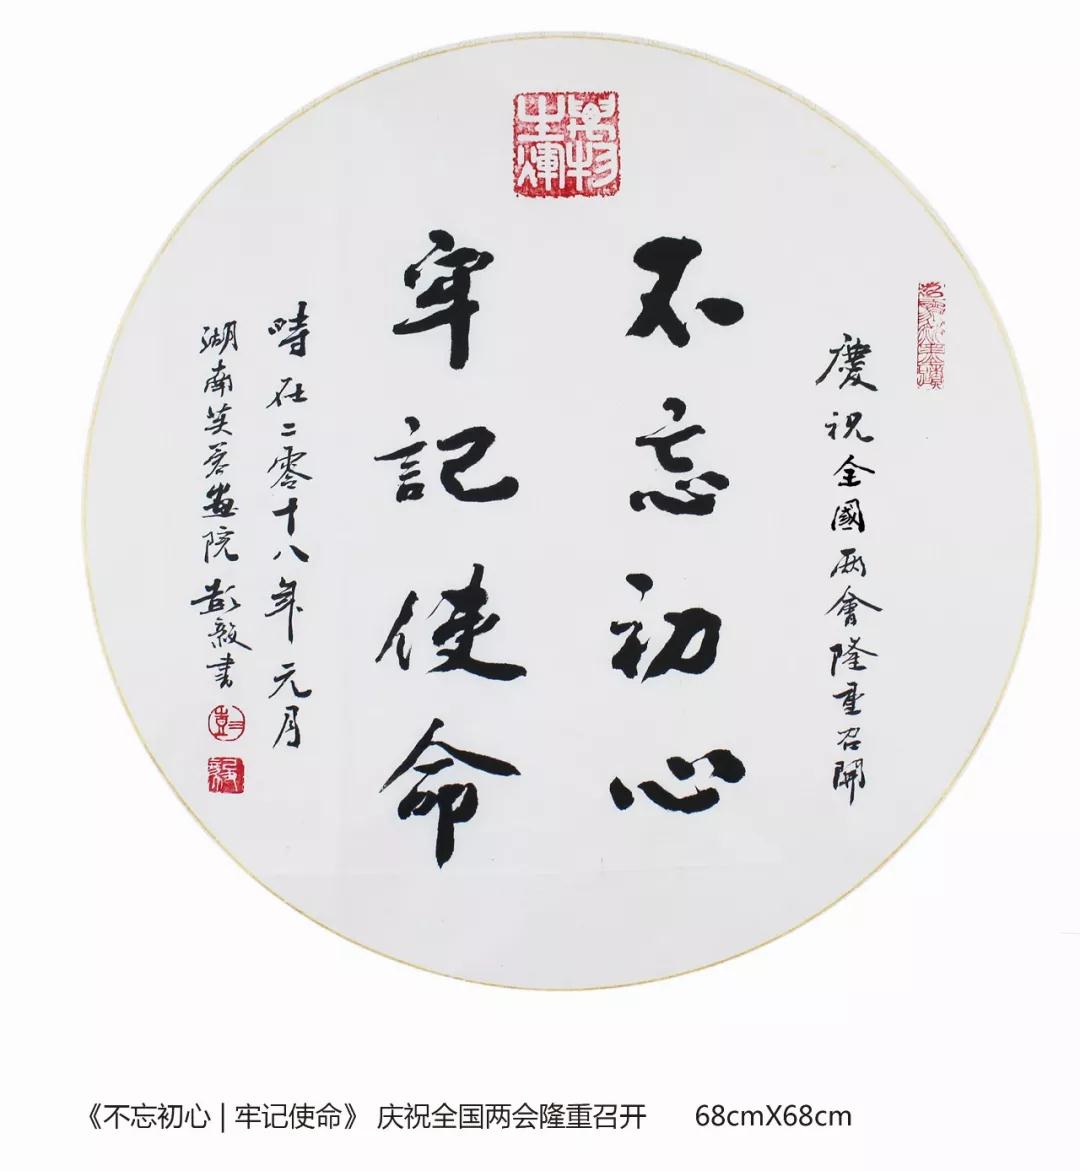 萬物生輝
慶祝全國两會隆重召開
不忘初心
牢記使命
時在二零十八年元月
湖南芙蓉畫院彭毅書
彭
毅
《不忘初心 | 牢记使命》 庆祝全国两会隆重召开 68cmX68cm